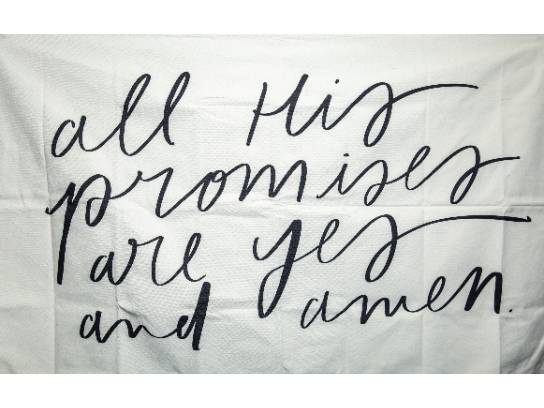 all His
promises
are yes
and amen.